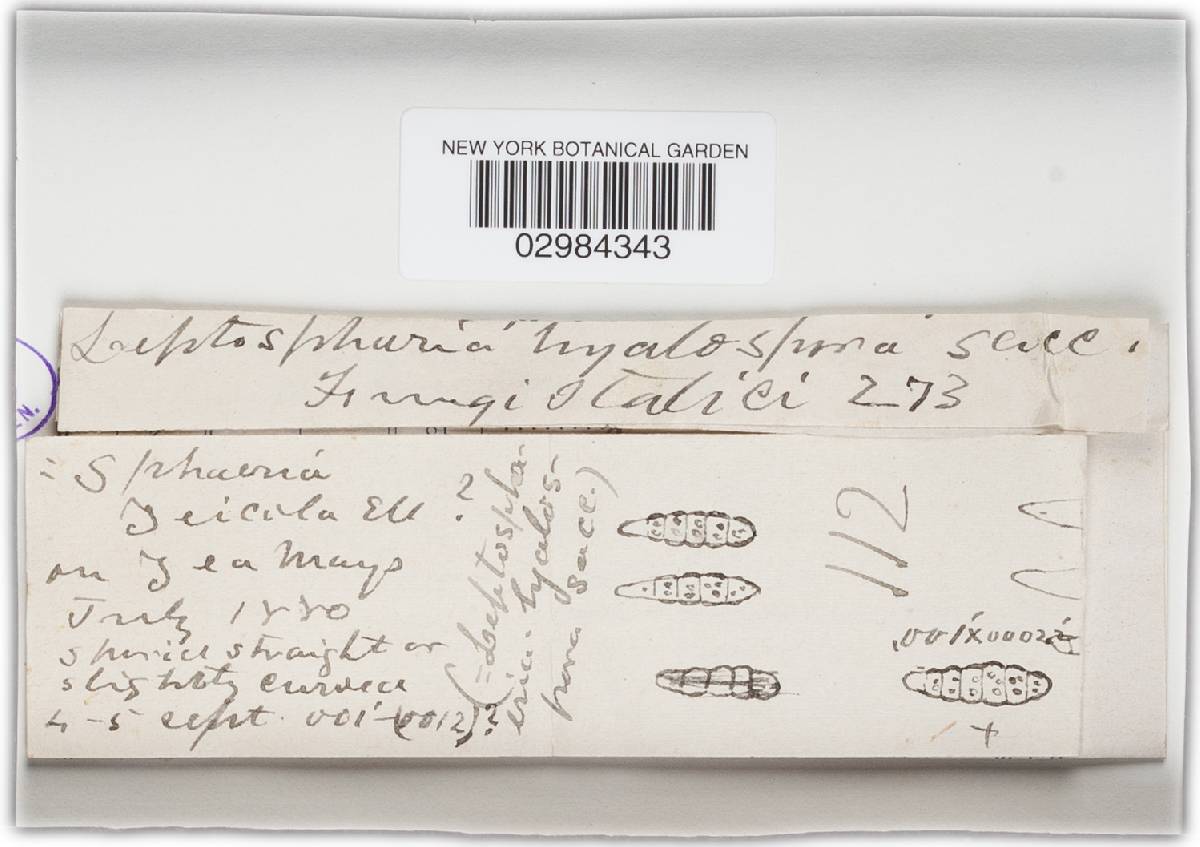 NEW YORK BOTANICAL GARDEN
02984343
Leptosphaeria hyalospora Sacc.
Fungi Italici 273
N.
= Sphaeria
Zeicola Ell ?
on Zea Mays
July 1880
sporidia straight or
slightly curved
4-5 sept. 001-(0012)?
(= Leptosphae-
eria hyalos-
pora Sacc.)
112
.001x00022
+